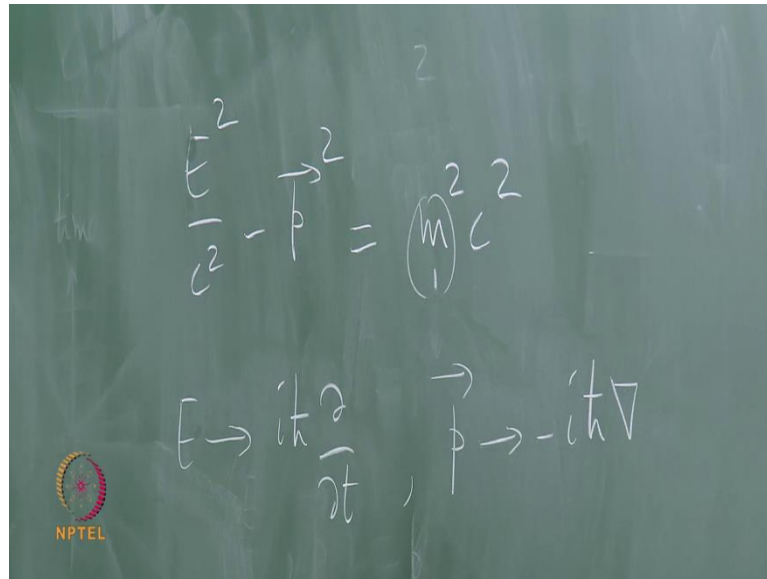 2
E²/c² - p⃗² = m²c²
E → iħ ∂/∂t , p⃗ → -iħ∇
NPTEL